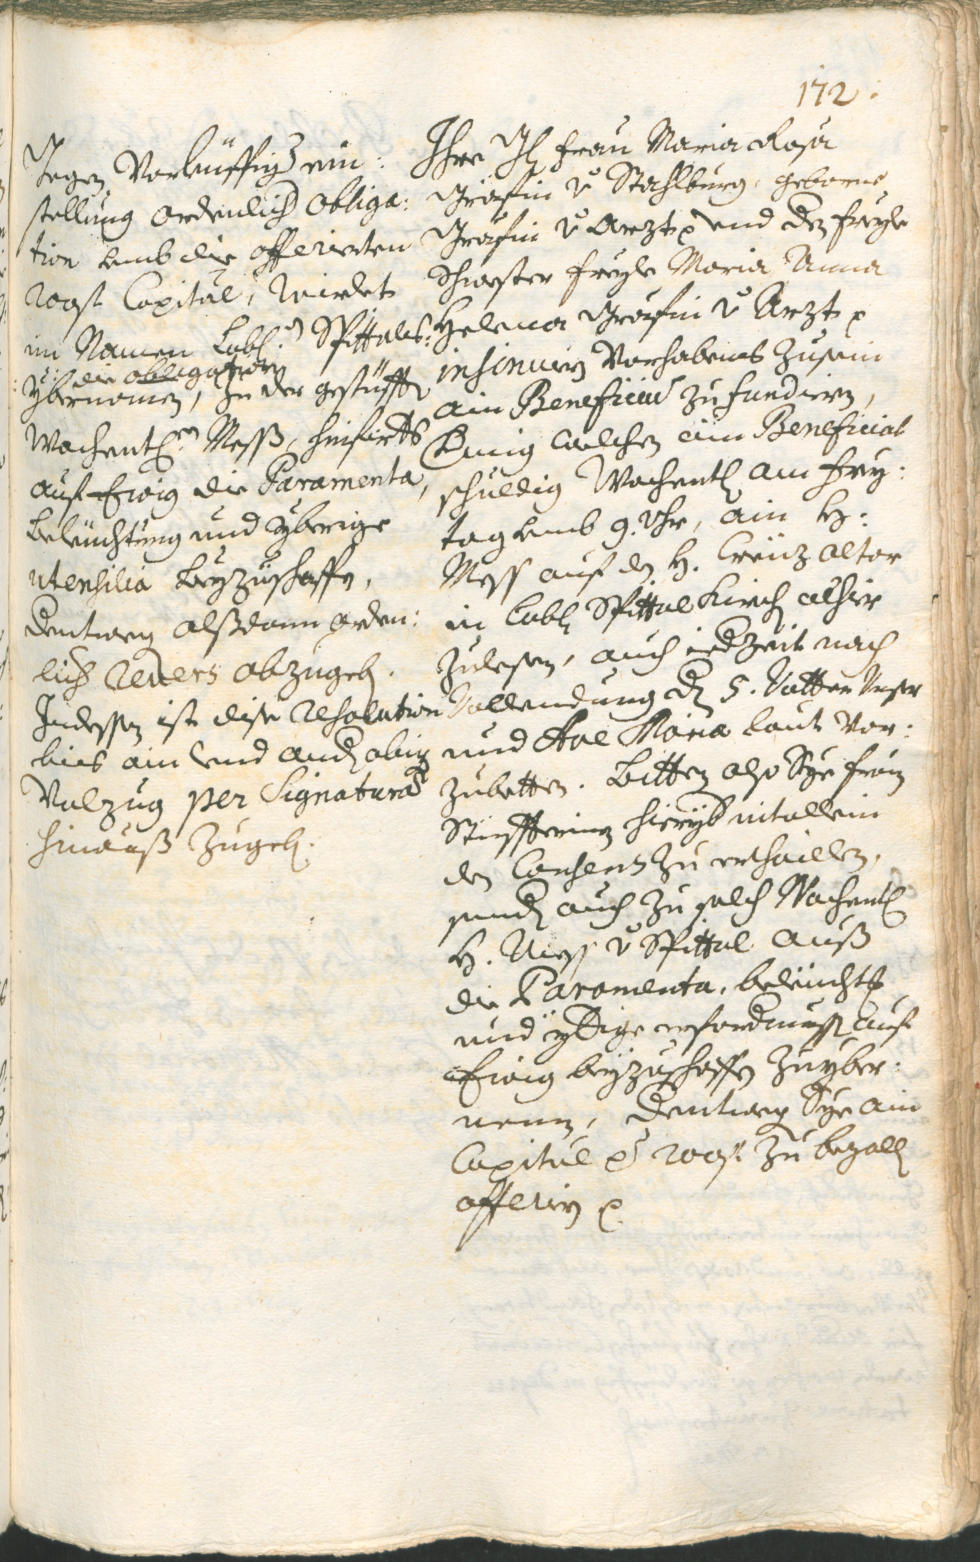 172.
Gegen Vorleuffig ein:
stellung ordenlich obliga:
tion umb die offerierten
200 fl Capital, wirdet
im Namen Lobl: Spittals:
die obligation
ybernomen, zu der gestüfften
Wochentl: Mess, hinfirts
auf Ewig die Paramenta,
beleichtung und yberige
utensilia beyzuschaffen,
dentweg alßdann orden:
lich Revers abzugeben.
Indessen ist dise resolution
bies ain und anders obig
Volzug per Signatura
hinauß zugeben.
Ihre G: Frau Maria Rosa
Gräfin v: Stachlburg, geborne
Gräfin v: Arzt p und der Freyle
Schwester Freyle Maria Anna
Helena Gräfin v: Arzt p
insinuirn Vorhabens zusein
ain Beneficiu zu fundirn,
Craftig welchen ain Beneficiat
schuldig Wochentl: am Frey:
tag umb 9. Uhr, ain H:
Mess auf den H. Creüz altar
in Lobl: Spittal Kirch alhier
zulesen, auch iedzeit nach
Vollendung der 5. Vatter Unser
und Ave Maria laut Vor:
zubetten. Bitten also Sye Frau
Stüffterin hieryber nit allein
den Consens zu erthaillen,
sondern auch zu solch Wochentl:
H. Mess v: Spittal auß
die Paramenta, beleicht:
und ybrige erfordnuss auf
Ewig beyzuschaffen zu yber:
nemen, dentweg Sye ain
Capital p: 200 fl. zu bezallen
offerirn p.